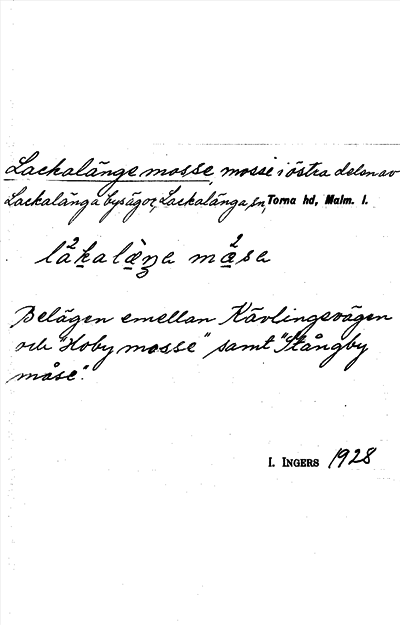 Lackalänge mosse, mosse i östra delen av
Lackalänga bysägor, Lackalänga sn, Torna hd, Malm. l.
Belägen emellan Kävlingevägen
och "Hoby mosse" samt "Stångby
måse".
I. INGERS 1928